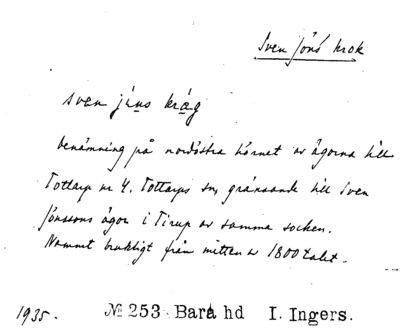 Sven Jöns krok
sven jins kråg
benämning på nordöstra hörnet av ägorna till
Tottarp nr 4. Tottarps sn, gränsande till Sven
Jönssons ägor i Tirup av samma socken.
Namnet brukligt från mitten av 1800 talet.
1935. № 253 Bara hd I. Ingers.